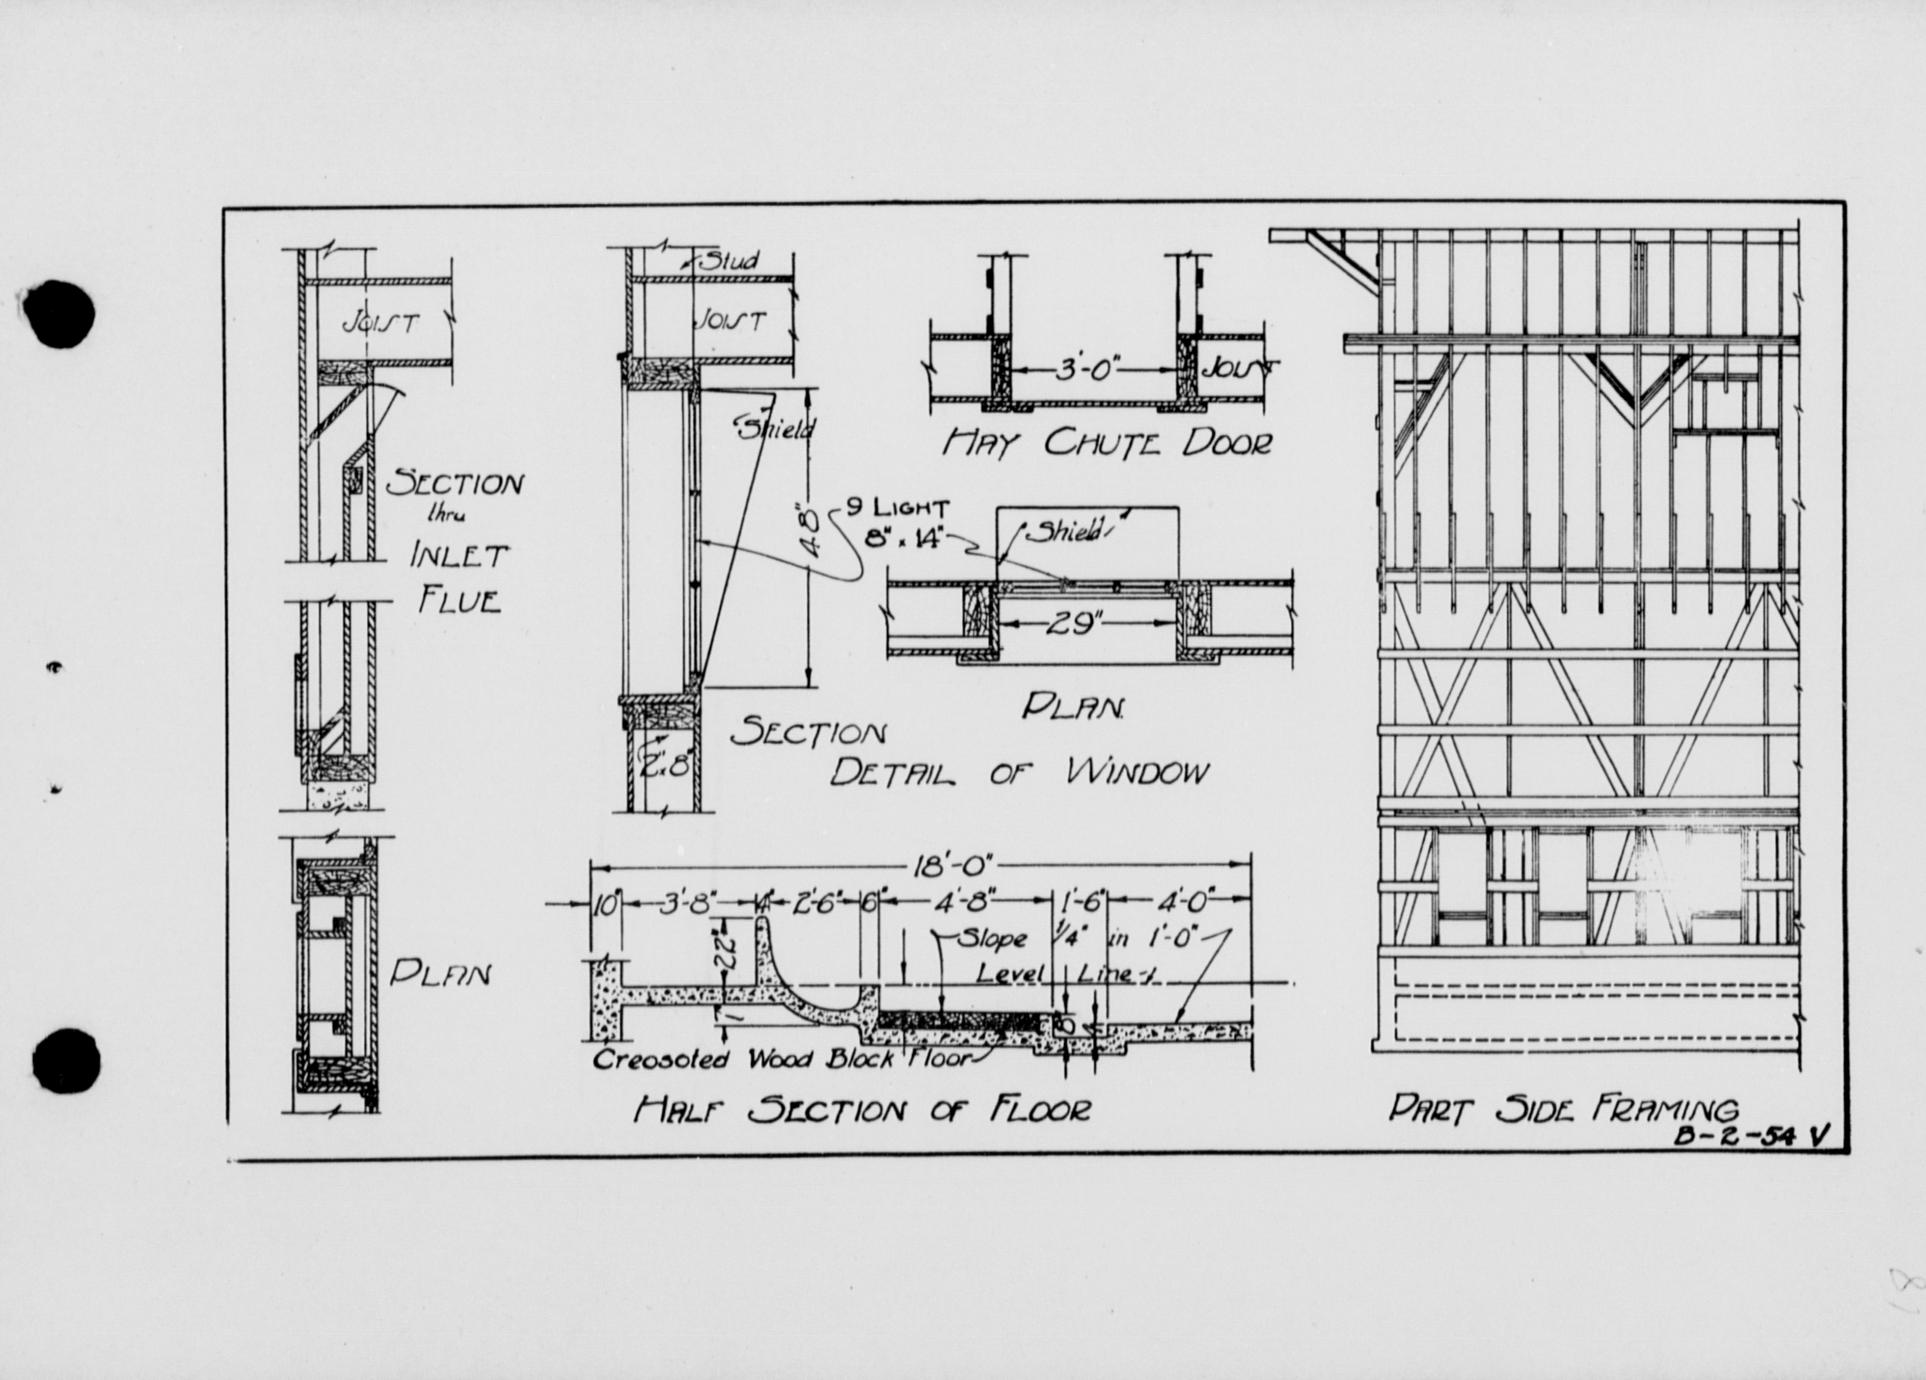 JOIST
SECTION
thru
INLET
FLUE
PLAN
Stud
JOIST
Shield
4'8"
2"x8"
SECTION
DETAIL OF WINDOW
9 LIGHT
8" x 14"
3'-0"
JOIST
HAY CHUTE DOOR
Shield
29"
PLAN
18'-0"
10" 3'-8" 4" 2'-6" 6" 4'-8" 1'-6" 4'-0"
22"
Slope 1/4" in 1'-0"
Level Line
1"
8"
4"
Creosoted Wood Block Floor
HALF SECTION OF FLOOR
PART SIDE FRAMING
B-2-54 V
8